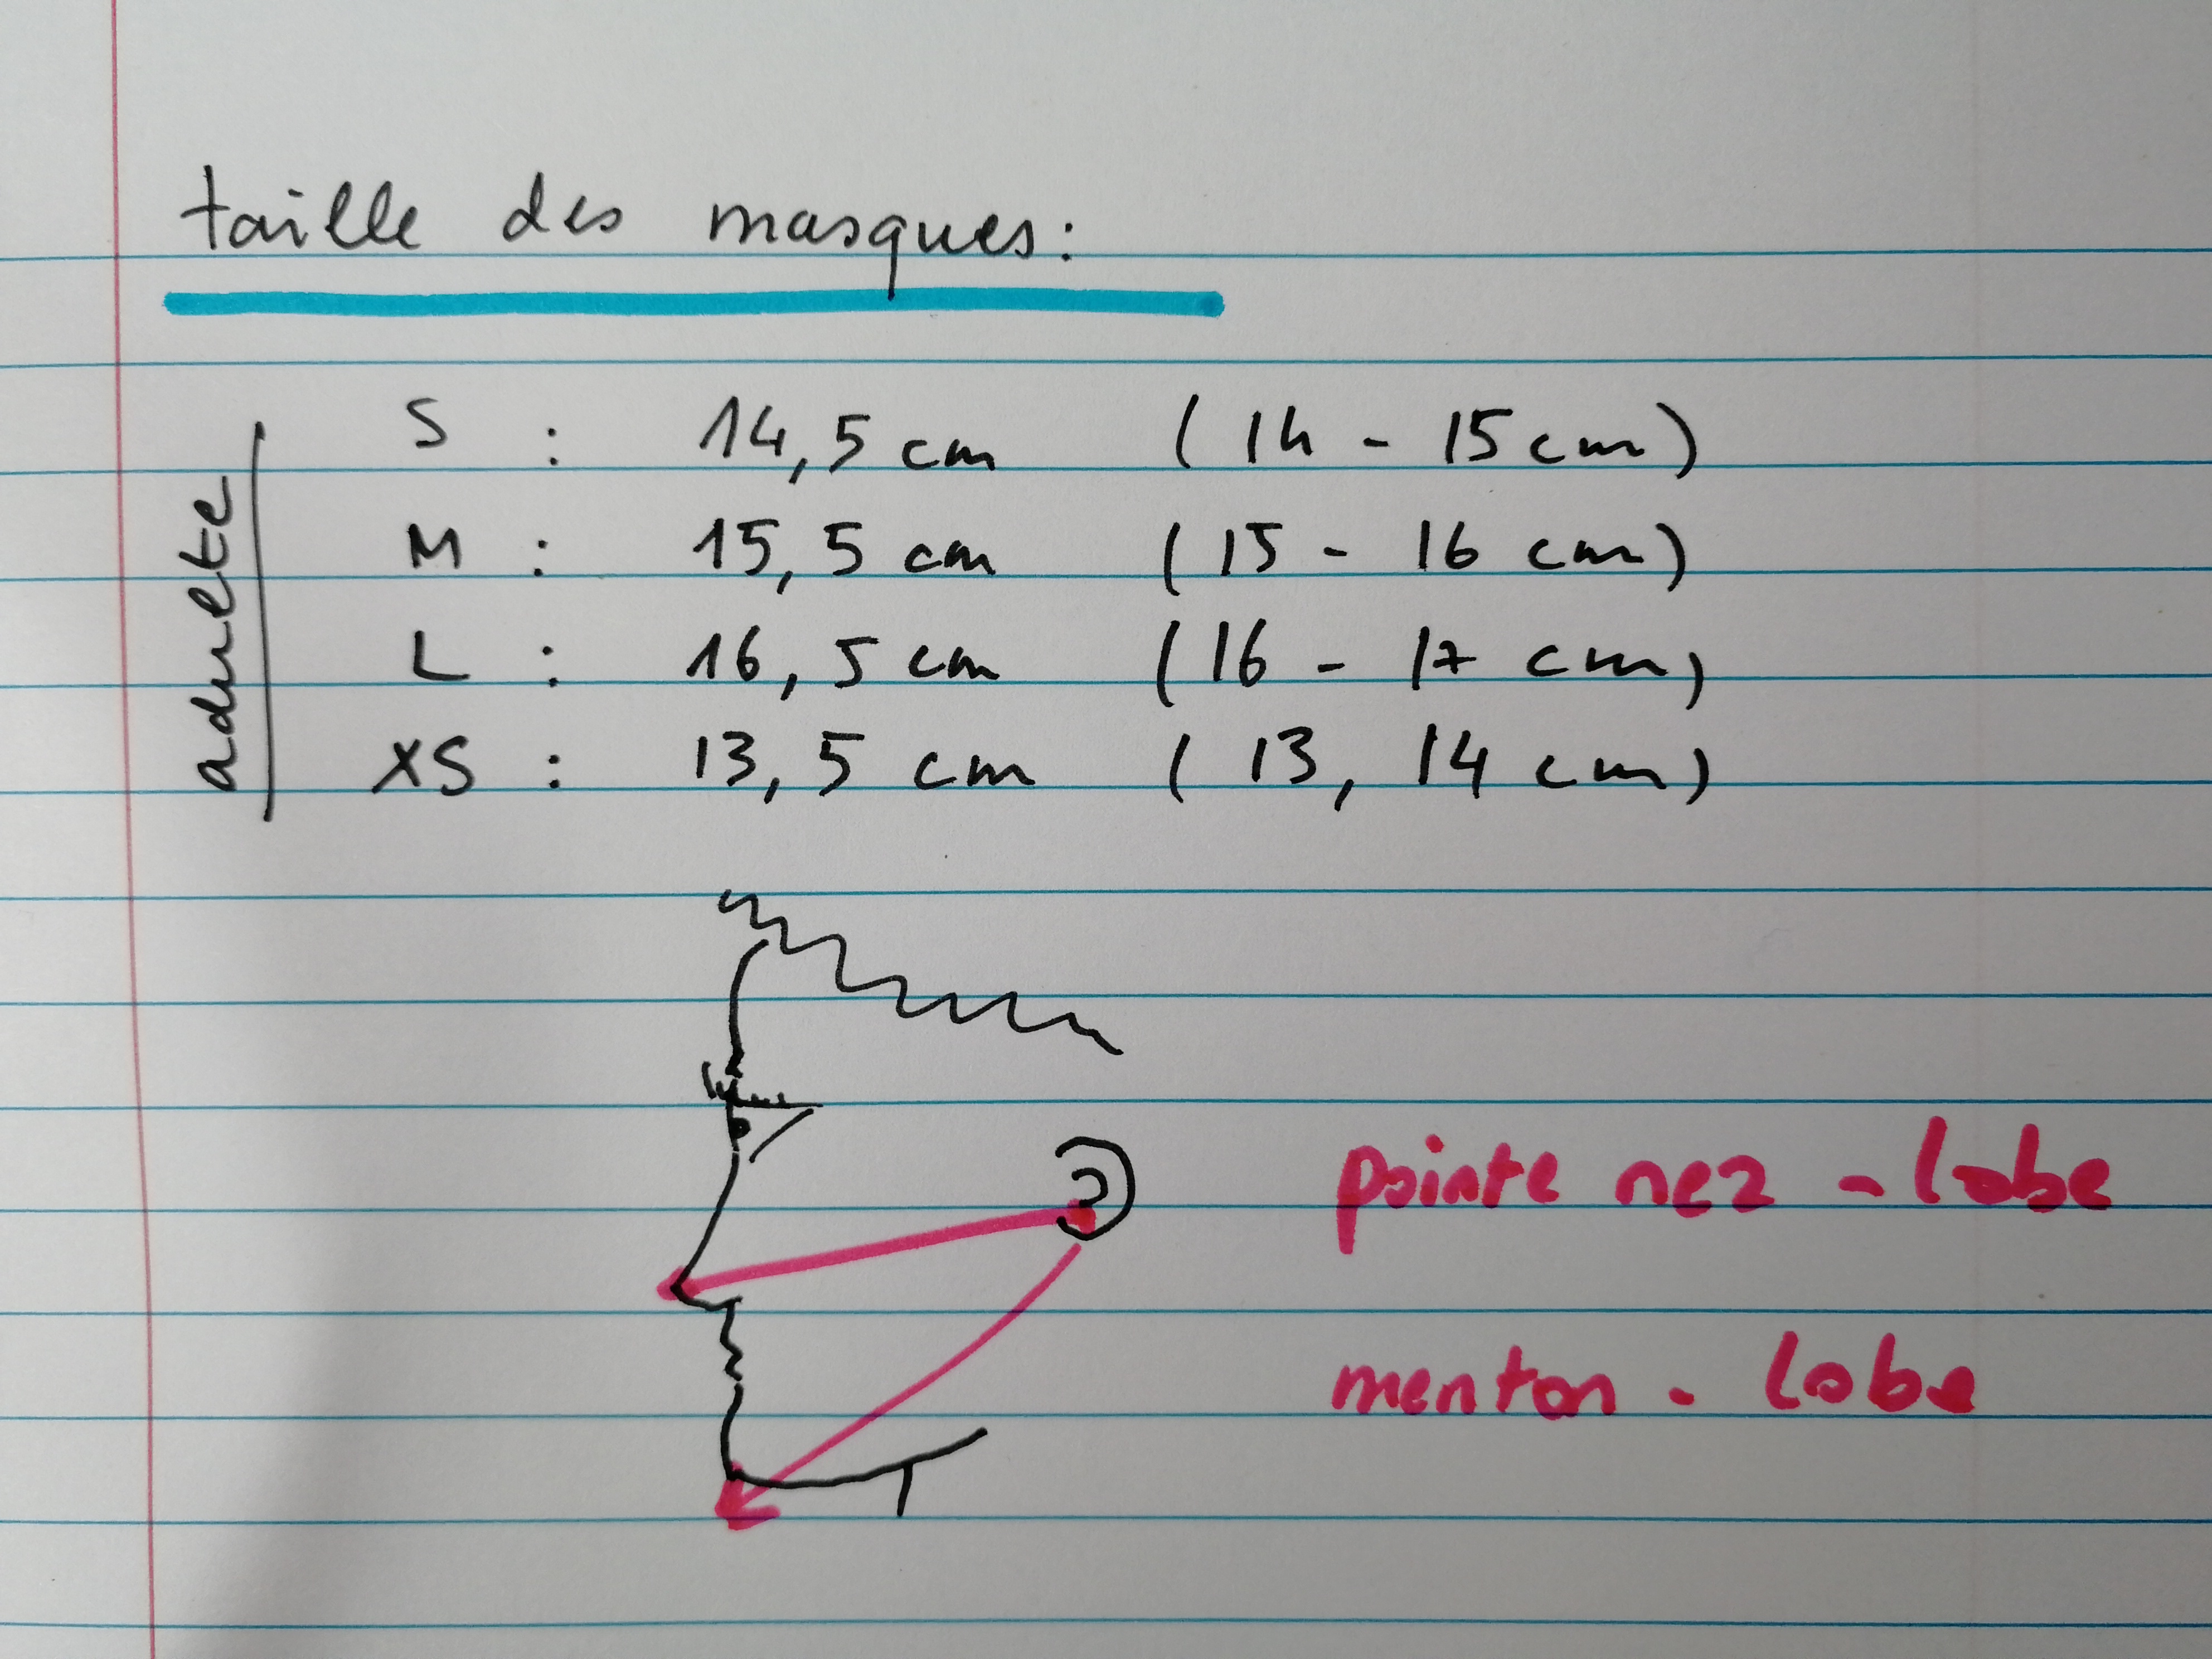 taille des masques:
adulte
S : 14,5 cm (14 - 15 cm)
M : 15,5 cm (15 - 16 cm)
L : 16,5 cm (16 - 17 cm)
XS : 13,5 cm (13, 14 cm)
pointe nez - lobe
menton - lobe